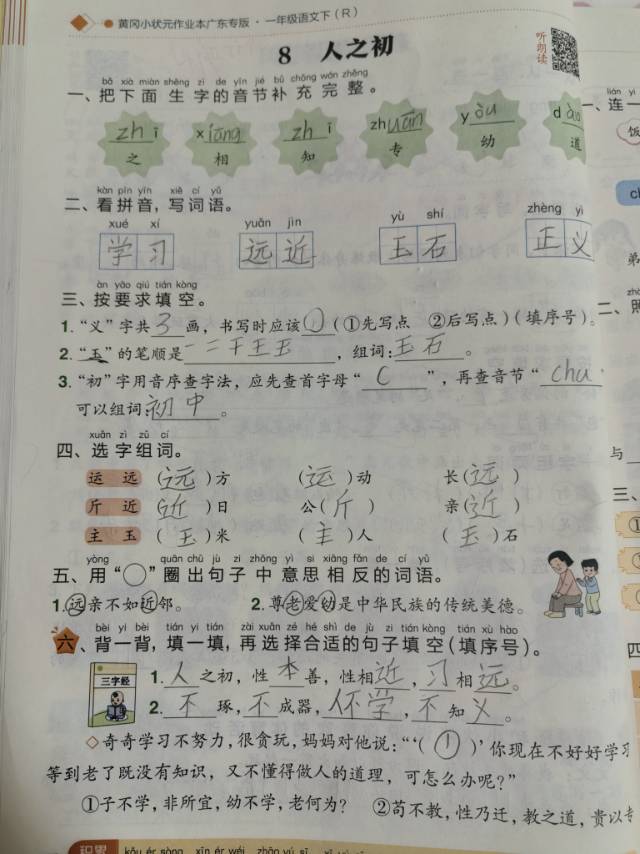 黄冈小状元作业本广东专版·一年级语文下(R)
8 人之初
听朗读
bǎ xià miàn shēng zì de yīn jié bǔ chōng wán zhěng
一、把下面生字的音节补充完整。
zhī xiāng zhī zhuān yòu dào
之 相 知 专 幼 道
kàn pīn yīn xiě cí yǔ
二、看拼音,写词语。
xué xí yuǎn jìn yù shí zhèng yì
学习 远近 玉石 正义
àn yāo qiú tián kòng
三、按要求填空。
1.“义”字共3画,书写时应该①(①先写点 ②后写点)(填序号)。
2.“玉”的笔顺是一二干王玉,组词:玉石。
3.“初”字用音序查字法,应先查首字母“C”,再查音节“chu”
可以组词:初中。
xuǎn zì zǔ cí
四、选字组词。
运 远 (远)方 (运)动 长(远)
斤 近 (近)日 公(斤) 亲(近)
主 玉 (玉)米 (主)人 (玉)石
yòng quān chū jù zi zhōng yì si xiāng fǎn de cí yǔ
五、用“○”圈出句子中意思相反的词语。
1.远亲不如近邻。 2.尊老爱幼是中华民族的传统美德。
bèi yi bèi tián yi tián zài xuǎn zé hé shì de jù zi tián kòng tián xù hào
六、背一背,填一填,再选择合适的句子填空(填序号)。
三字经
1.人之初,性本善,性相近,习相远。
2.不琢,不成器,不学,不知义。
◇奇奇学习不努力,很贪玩,妈妈对他说:“‘(①)’你现在不好好学习
等到老了既没有知识,又不懂得做人的道理,可怎么办呢?”
①子不学,非所宜,幼不学,老何为? ②苟不教,性乃迁,教之道,贵以专
积累
lián yi
一、连一
饭
弟
二、照
与
三、
①
四